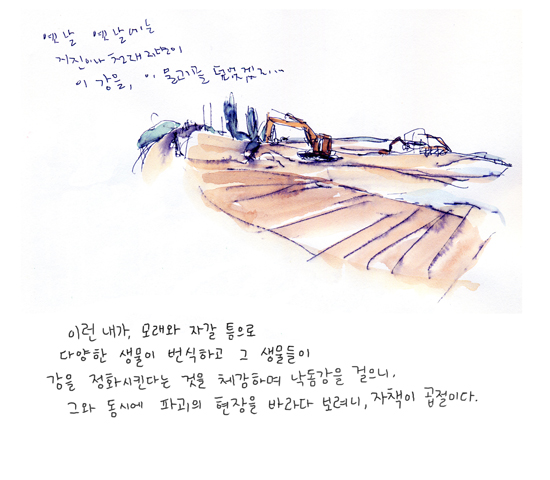 옛날 옛날에는
지진이나 천재지변이
이 강을, 이 물고기를 덮쳤겠지...
이런 내가, 모래와 자갈 틈으로
다양한 생물이 번식하고 그 생물들이
강을 정화시킨다는 것을 체감하며 낙동강을 걸으니,
그와 동시에 파괴의 현장을 바라다 보려니, 자책이 곱절이다.